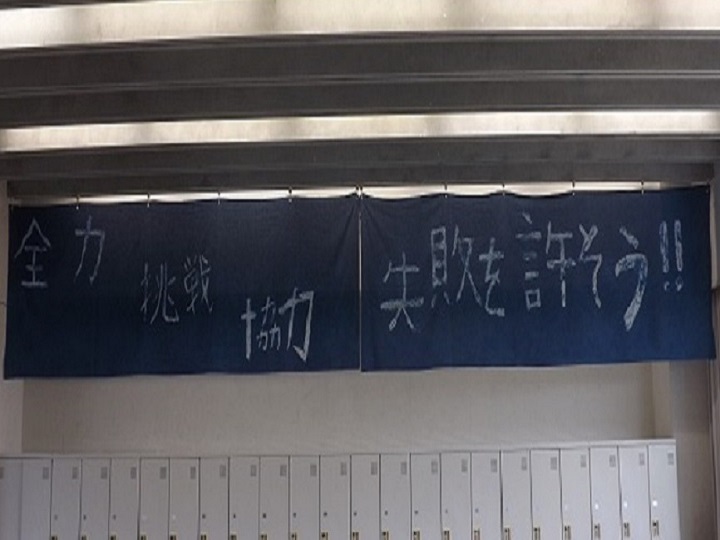 全力
挑戦
協力
失敗を許そう!!